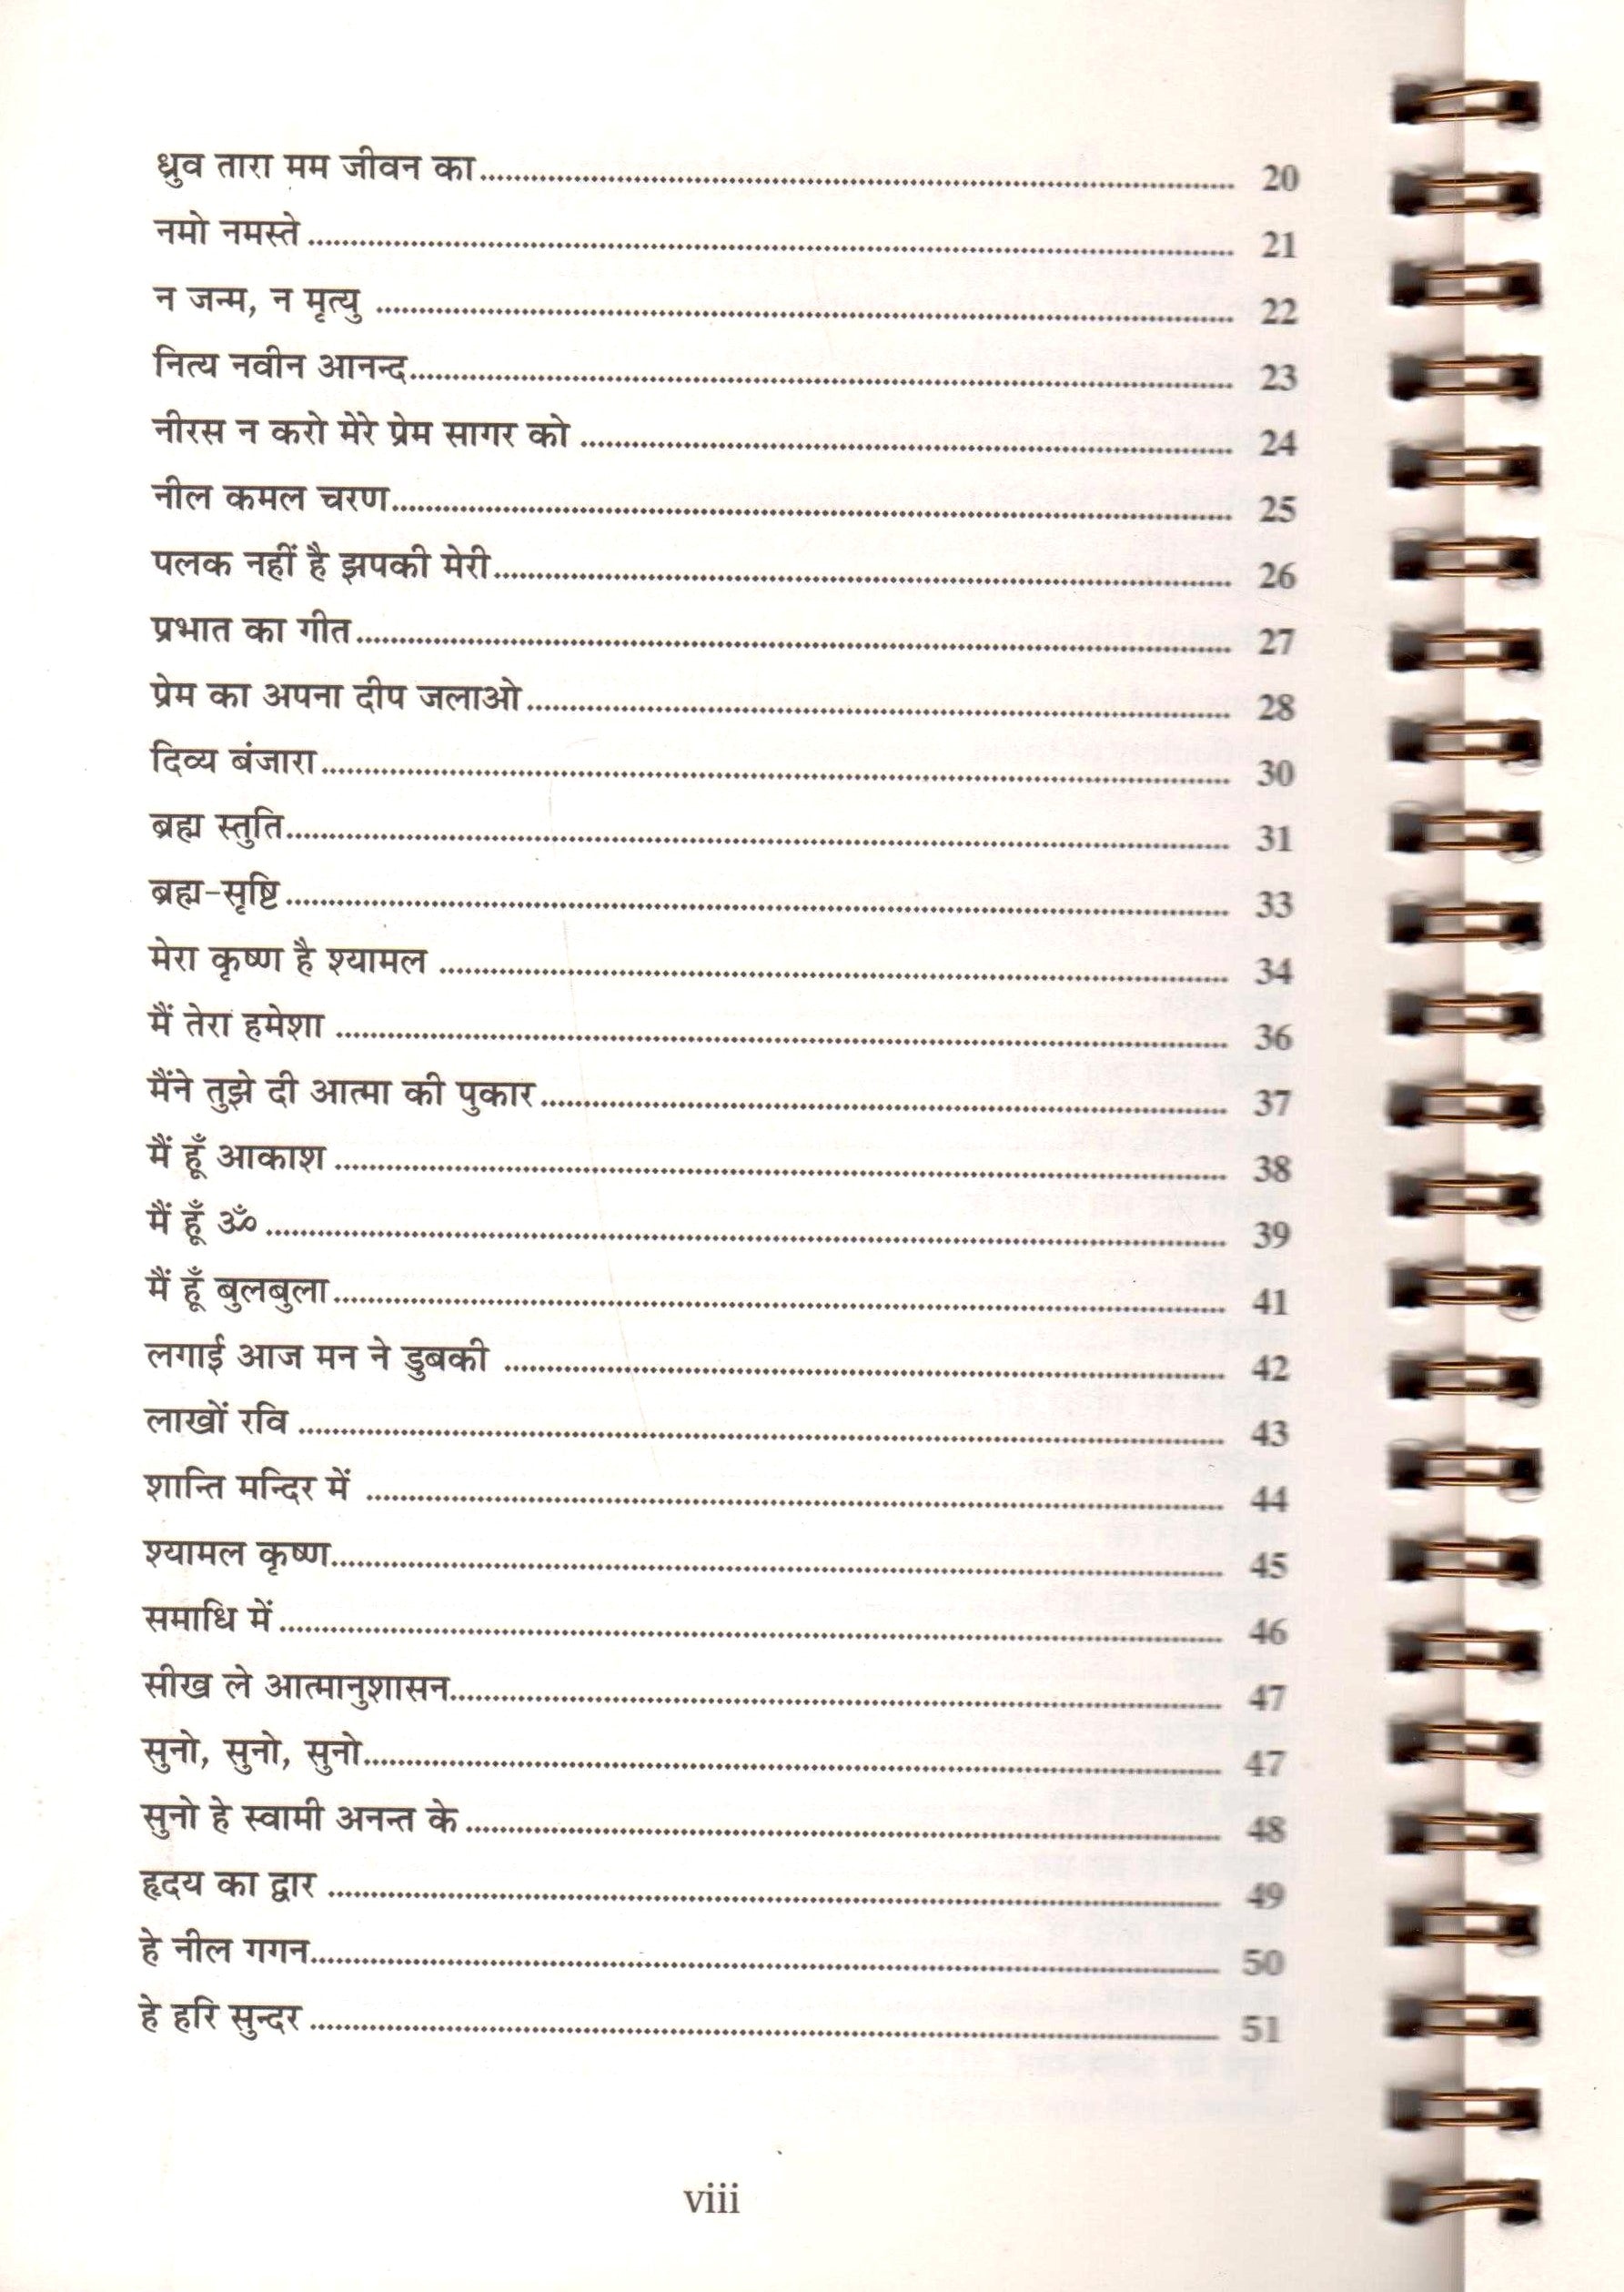 ध्रुव तारा मम जीवन का........................ 20
नमो नमस्ते........................ 21
न जन्म, न मृत्यु ........................ 22
नित्य नवीन आनन्द........................ 23
नीरस न करो मेरे प्रेम सागर को ........................ 24
नील कमल चरण........................ 25
पलक नहीं है झपकी मेरी........................ 26
प्रभात का गीत........................ 27
प्रेम का अपना दीप जलाओ........................ 28
दिव्य बंजारा........................ 30
ब्रह्म स्तुति........................ 31
ब्रह्म-सृष्टि........................ 33
मेरा कृष्ण है श्यामल ........................ 34
मैं तेरा हमेशा ........................ 36
मैंने तुझे दी आत्मा की पुकार........................ 37
मैं हूँ आकाश ........................ 38
मैं हूँ ॐ........................ 39
मैं हूँ बुलबुला........................ 41
लगाई आज मन ने डुबकी ........................ 42
लाखों रवि ........................ 43
शान्ति मन्दिर में ........................ 44
श्यामल कृष्ण........................ 45
समाधि में........................ 46
सीख ले आत्मानुशासन........................ 47
सुनो, सुनो, सुनो........................ 47
सुनो हे स्वामी अनन्त के........................ 48
हृदय का द्वार ........................ 49
हे नील गगन........................ 50
हे हरि सुन्दर ........................ 51
viii